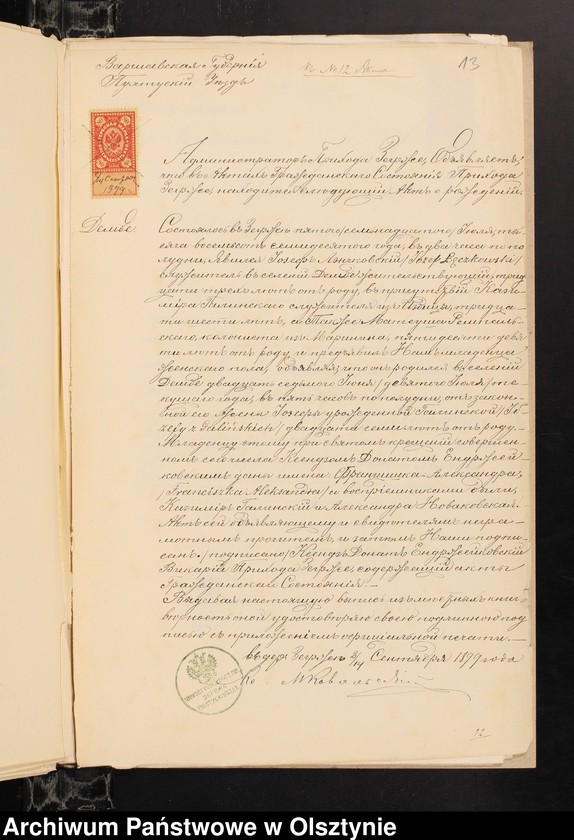 Варшавская Губернія
Пултускій Уѣздъ
к № 12
13
1879.
Администраторъ Прихода Зегрже, Объявляетъ,
что въ Актахъ Гражданскаго Состоянія Прихода
Зегрже, находится слѣдующій Актъ о рожденіи.
Дембе. Состоялось въ Зегрже пятого /семнадцатого/ Іюля, ты-
сяча восемьсотъ семидесятого года, въ два часа по по-
лудни, явился Іосефъ Лэнчковскій /Józef Łęczkowski/
служитель въ селеніи Дембе жительствующій, трид-
цати трехъ лѣтъ отъ роду, въ присутствіи Кази-
міра Галинскаго служителя изъ тридца-
ти шести лѣтъ, а также Матеуша
колониста изъ пятидесяти девя-
ти лѣтъ отъ роду и предъявилъ Намъ младенца
женскаго пола, объявляя, что онъ родился въ селеніи
Дембе двадцать седьмого Іюня /девятого Іюля/ те-
кущаго года, въ пять часовъ по полудни, отъ закон-
ной его Жены Іозефы урожденной Галинской /Jó-
zefy z Galińskich/ двадцати семи лѣтъ отъ роду.
Младенцу этому при святомъ крещеніи совершен-
номъ сего числа Ксендзомъ Донатомъ Ендржей-
ковскимъ даны имена Францишка-Александра,
/Franciszka Aleksandra/ а воспріемниками были,
Казимиръ Галинскій и Александра Новаковская.
Актъ сей объявляющему и свидѣтелямъ негра-
мотнымъ прочитанъ, и затѣмъ Нами подпи-
санъ. /подписано/ Ксендзъ Донатъ Ендржейковскій
Викарій Прихода Зегрже, содержащій акты
Гражданскаго Состоянія.
Выдавая настоящую выпись изъ метрическихъ книгъ
вѣрность оной удостовѣряю своею подлинною под-
писью съ приложеніемъ оффиціальной печати.
въ дер. Зегрже 2/14 Сентября 1879 года
Кс.
12
Archiwum Państwowe w Olsztynie